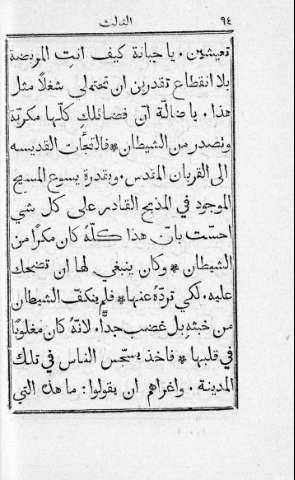 ٩٤ الثالث
تعيشين . يا جبانة كيف انتِ المريضة
بلا انقطاع تقدرين ان تحتملي شغلاً مثل
هذا . يا ضالّة انّ فضائلكِ كلّها مكريّة
وتصدر من الشيطان * فالتجأت القديسه
الى القربان المقدس . وبقدرة يسوع المسيح
الموجود في المذبح القادر على كل شي
احسّت بانّ هذا كلّهُ كان مكرًا من
الشيطان * وكان ينبغي لها ان تضحك
عليه . لكي تردّهُ عنها * فلم ينكفّ الشيطان
من خبثهِ بل غضب جدًّا . لانّهُ كان مغلوبًا
في قلبها * فاخذ يسجّس الناس في تلك
المدينة . واغراهم ان يقولوا : ما هذه التي